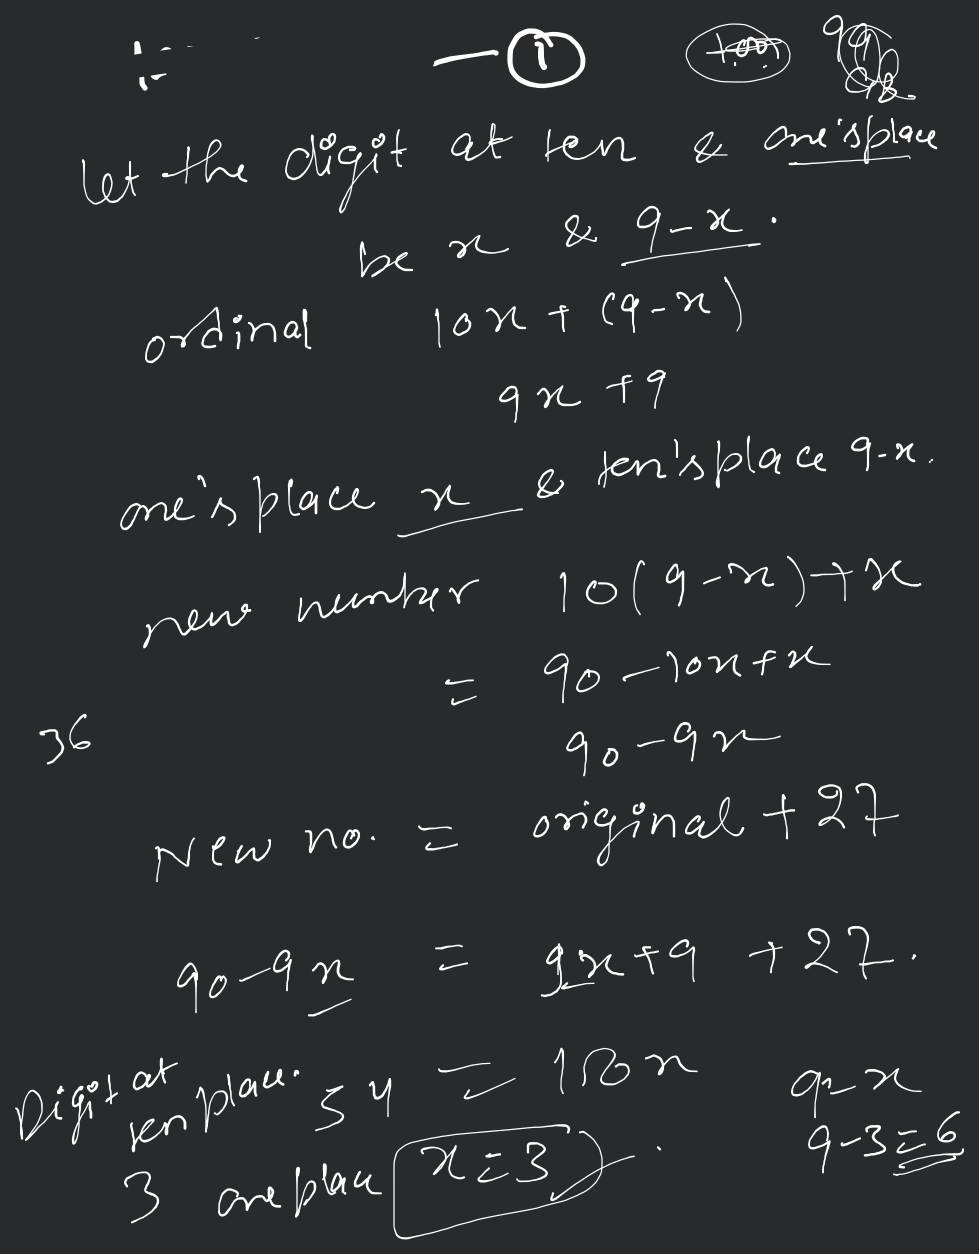 — (1)
let the digit at ten & one's place
be x & 9-x.
ordinal 10x + (9-x)
9x + 9
one's place x & ten's place 9-x.
new number 10(9-x)+x
= 90-10x+x
36
90-9x
New no. = original + 27
90-9x = 9x+9 + 27.
Digit at ten place. 54 = 18x 9-x
3 one place x=3 9-3=6